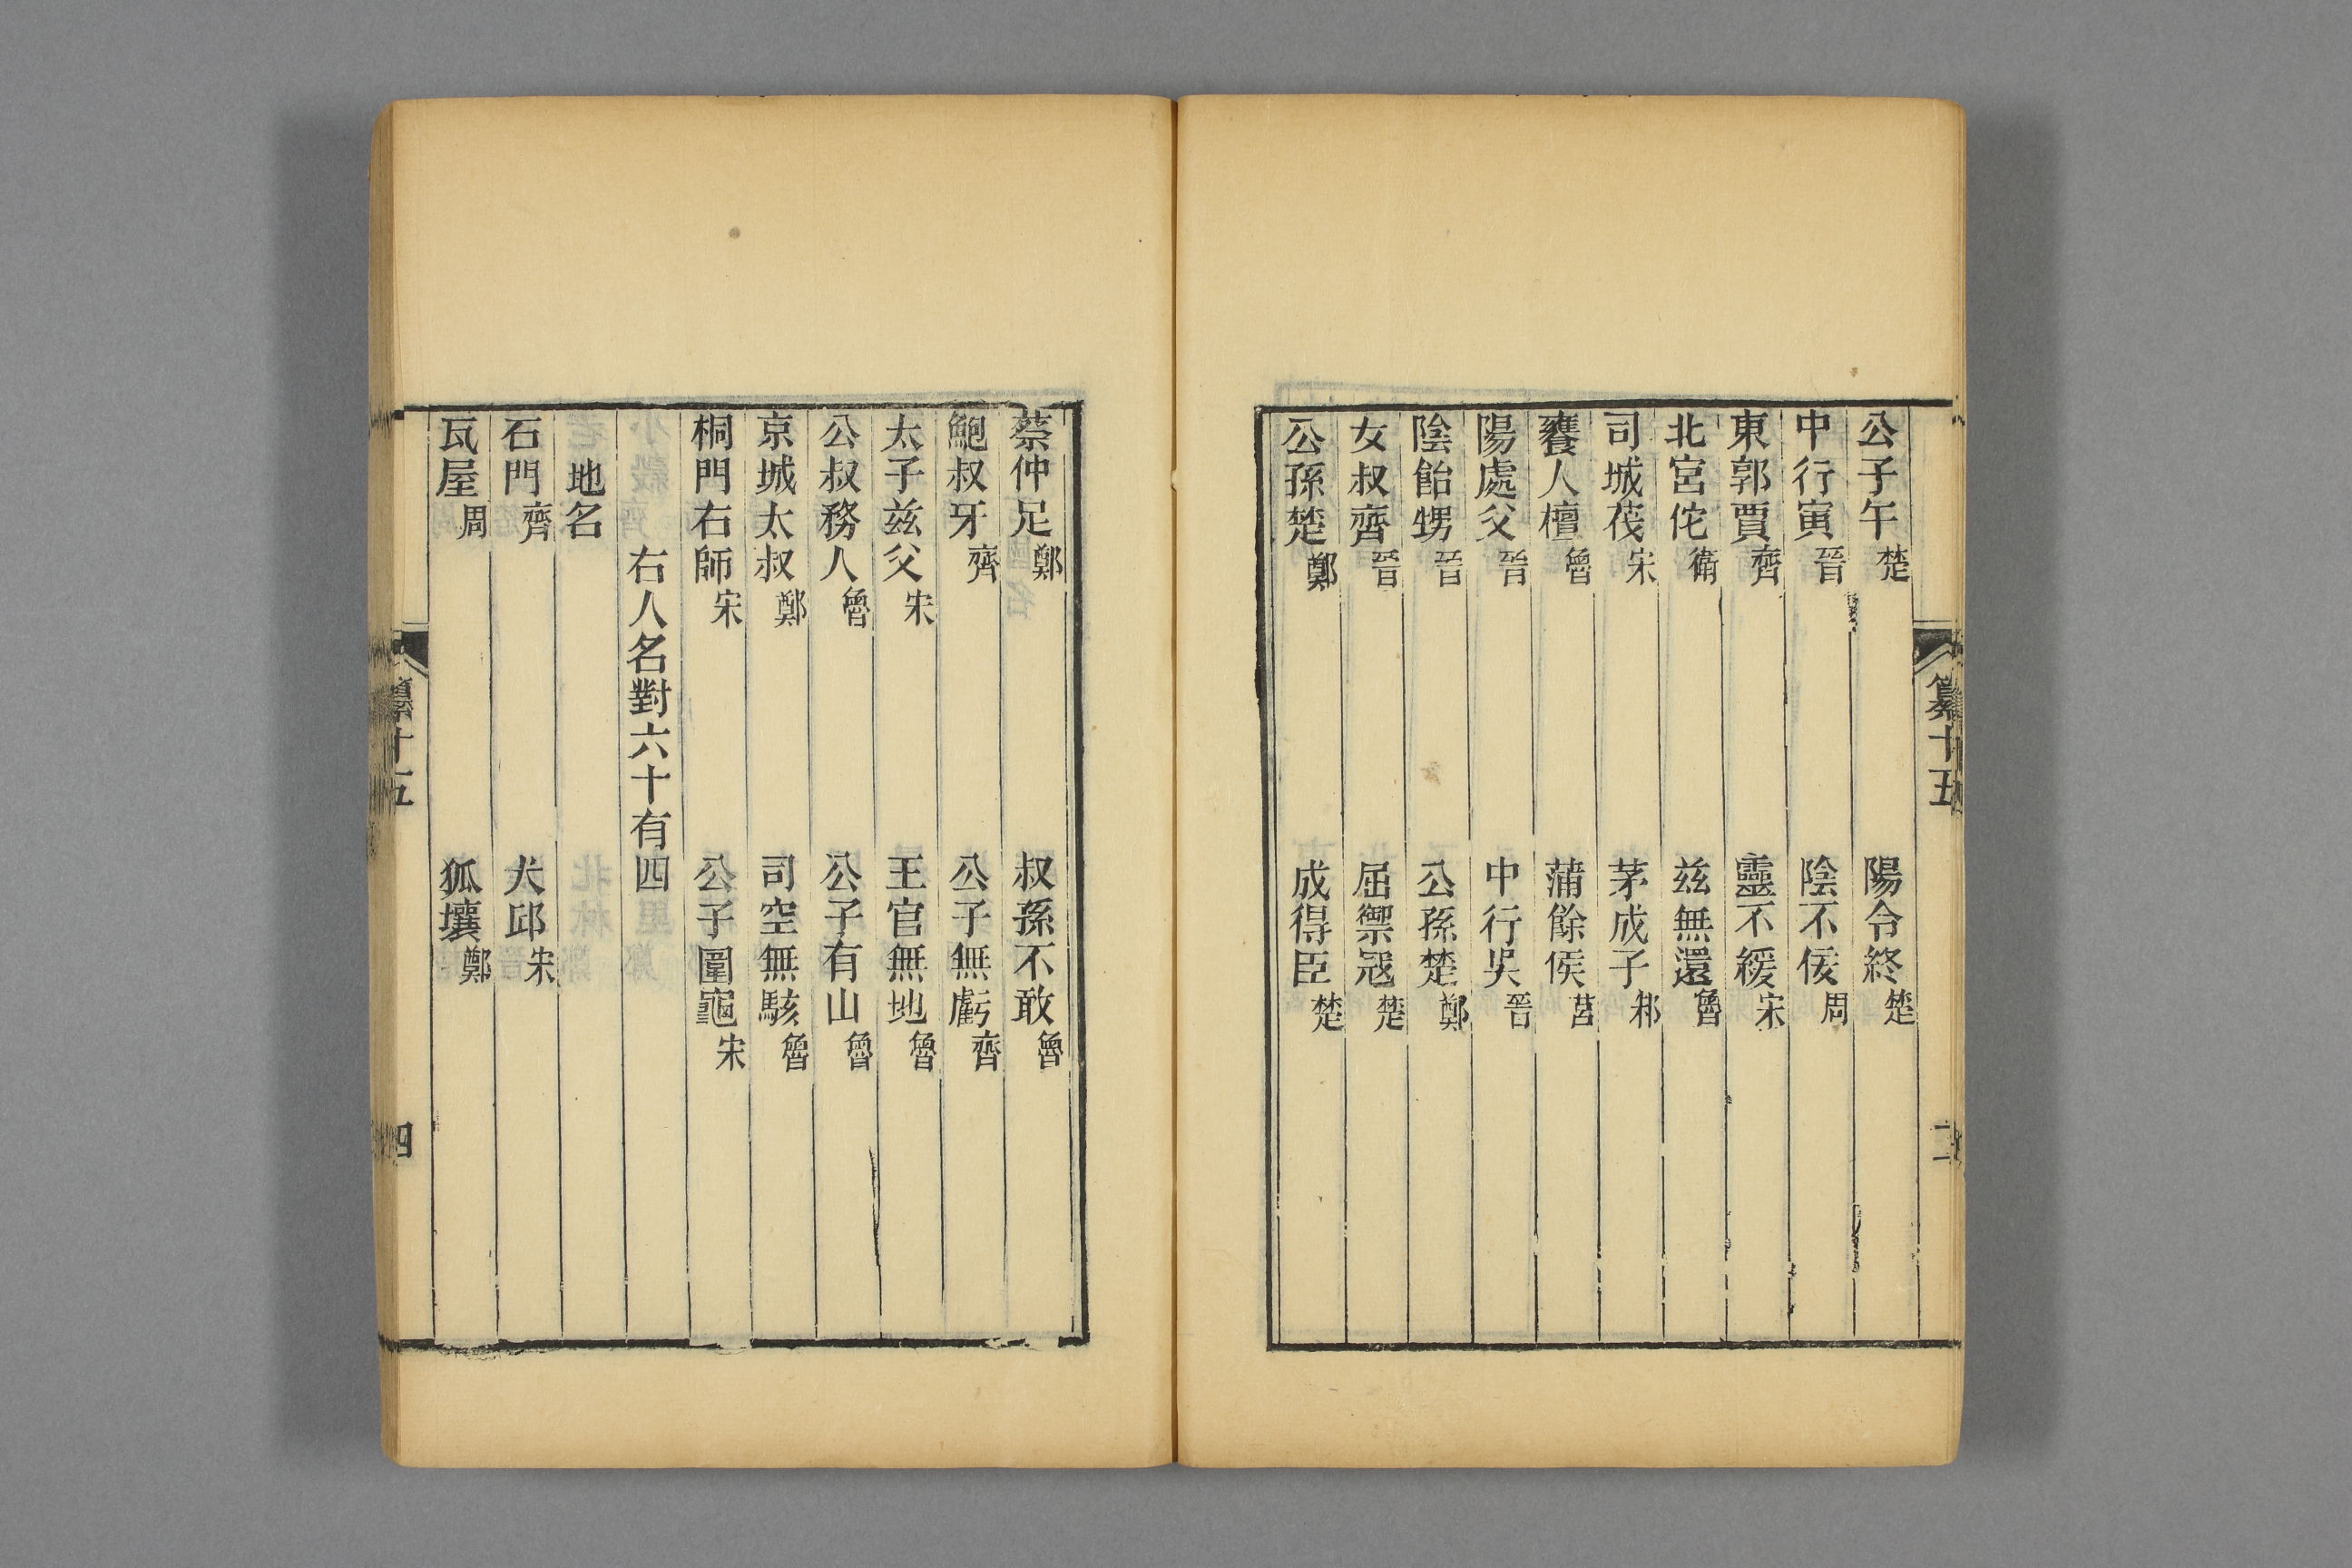 公子午楚 陽令終楚
中行寅晉 陰不佞周
東郭賈齊 靈不緩宋
北宮佗衛 兹無還魯
司城茷宋 茅成子邾
饔人檀魯 蒲餘侯莒
陽處父晉 中行吳晉
陰飴甥晉 公孫楚鄭
女叔齊晉 屈禦寇楚
公孫楚鄭 成得臣楚
纂十五
蔡仲足鄭 叔孫不敢魯
鮑叔牙齊 公子無虧齊
太子兹父宋 王官無地魯
公叔務人魯 公子有山魯
京城太叔鄭 司空無駭魯
桐門右師宋 公子圍龜宋
右人名對六十有四
地名
石門齊 犬邱宋
瓦屋周 狐壤鄭
纂十五
四